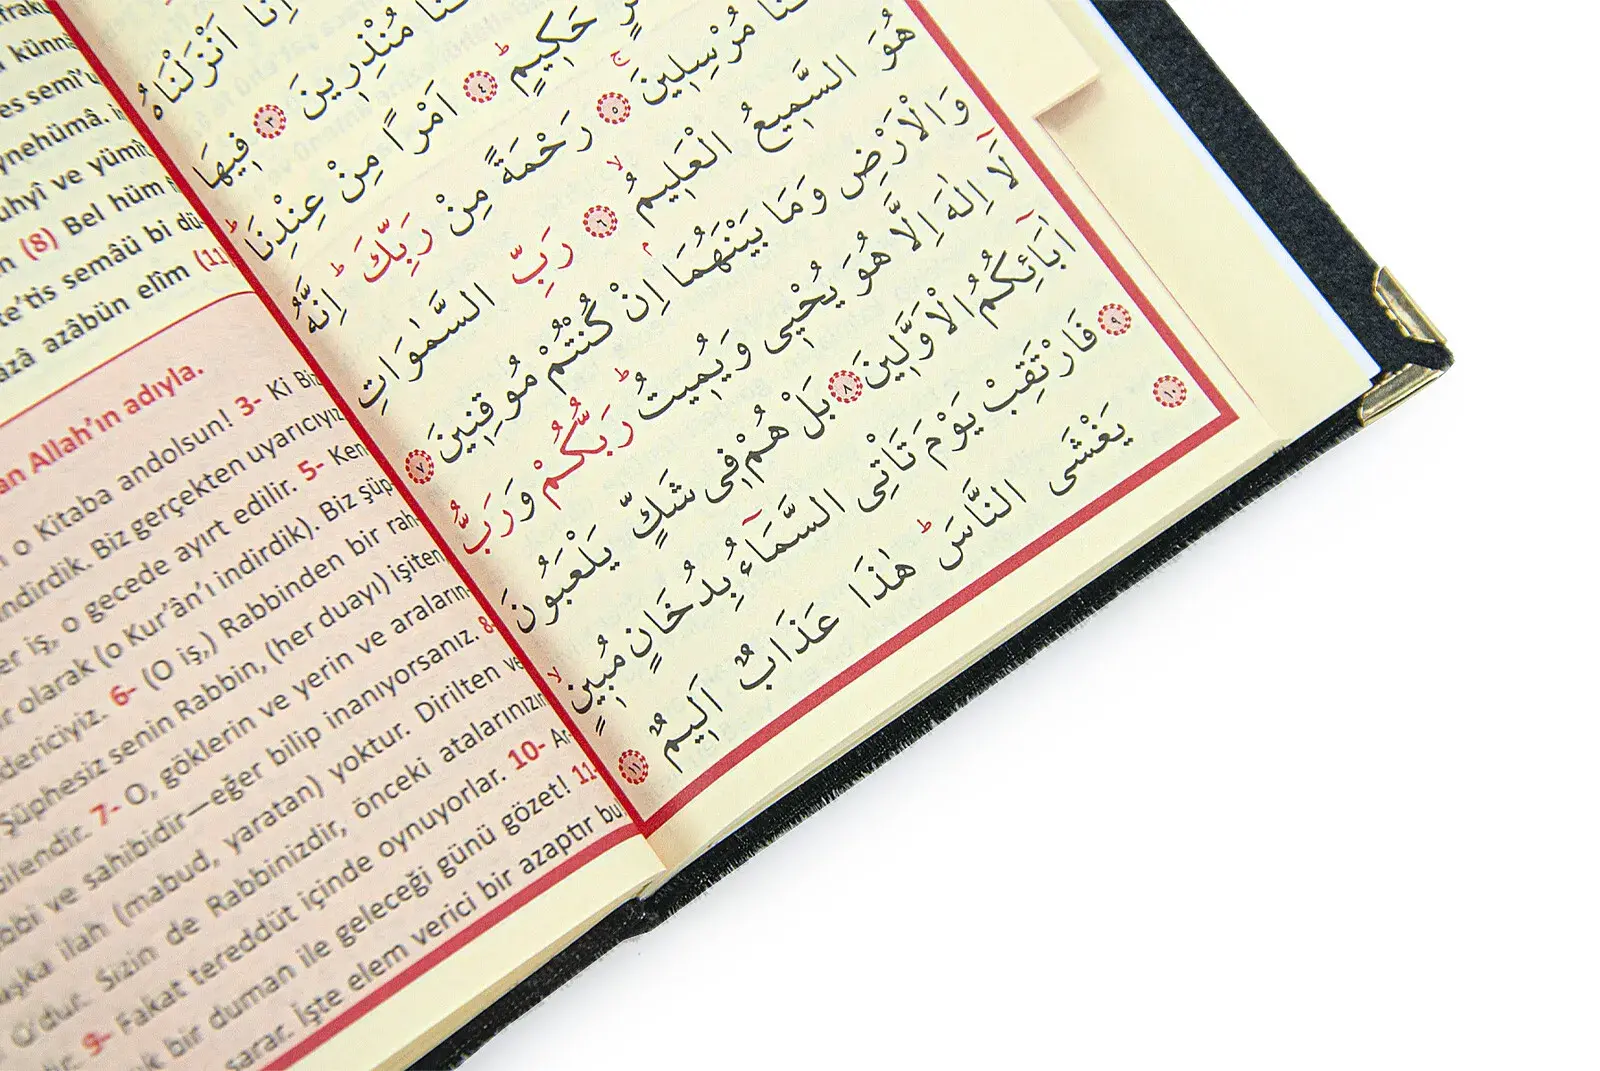 اِنَّا اَنْزَلْنَاهُ
مُنْذِرِينَ ﴿٣﴾ فِيهَا
حَكِيمٍ ﴿٤﴾ اَمْرًا مِنْ عِنْدِنَا
مُرْسِلِينَ ﴿٥﴾ رَحْمَةً مِنْ رَبِّكَ اِنَّهُ
هُوَ السَّمِيعُ الْعَلِيمُ ﴿٦﴾ رَبِّ السَّمٰوَاتِ
وَالْاَرْضِ وَمَا بَيْنَهُمَا اِنْ كُنْتُمْ مُوقِنِينَ ﴿٧﴾
لَا اِلٰهَ اِلَّا هُوَ يُحْيٖى وَيُمِيتُ رَبُّكُمْ وَرَبُّ
اٰبَائِكُمُ الْاَوَّلِينَ ﴿٨﴾ بَلْ هُمْ فِى شَكٍّ يَلْعَبُونَ
﴿٩﴾ فَارْتَقِبْ يَوْمَ تَاْتِى السَّمَاءُ بِدُخَانٍ مُبِينٍ
﴿١٠﴾ يَغْشَى النَّاسَ هٰذَا عَذَابٌ اَلِيمٌ ﴿١١﴾
künn
es semî'u
ynehümâ.
uhyî ve yümît
(8) Bel hüm
te'tis semâü bi dü
azâ azâbün elîm (11)
an Allah'ın adıyla.
o Kitaba andolsun! 3- Ki Biz
ndirdik. Biz gerçekten uyarıcıyız
er iş, o gecede ayırt edilir. 5- Ken
r olarak (o Kur'ân'ı indirdik). Biz şüp
dericiyiz. 6- (O iş,) Rabbinden bir rah
Şüphesiz senin Rabbin, (her duayı) işiten
bilendir. 7- O, göklerin ve yerin ve araların
abbi ve sahibidir—eğer bilip inanıyorsanız. 8-
aşka ilah (mabud, yaratan) yoktur. Dirilten ve
O'dur. Sizin de Rabbinizdir, önceki atalarınızın
dir. 9- Fakat tereddüt içinde oynuyorlar. 10- Ar
k bir duman ile geleceği günü gözet! 11-
sarar. İşte elem verici bir azaptır bu